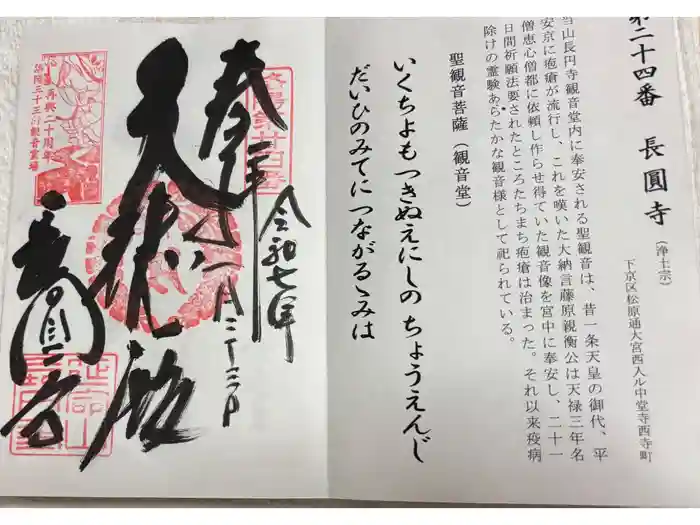 第二十四番　長圓寺（浄土宗）
下京区松原通大宮西入ル中堂寺西寺町
当山長円寺観音堂内に奉安される聖観音は、昔一条天皇の御代、平
安京に疱瘡が流行し、これを嘆いた大納言藤原親衡公は天禄三年名
僧恵心僧都に依頼し作らせ得ていた観音像を宮中に奉安し、二十一
日間祈願法要されたところたちまち疱瘡は治まった。それ以来疫病
除けの霊験あらたかな観音様として祀られている。
聖観音菩薩（観音堂）
いくちよもつきぬえにしの ちょうえんじ
だいひのみてに つながるゝみは
洛陽第廿四番
奉拝
令和七年
十一月二十三日
大悲殿
長圓寺
再興二十周年
洛陽三十三所観音霊場